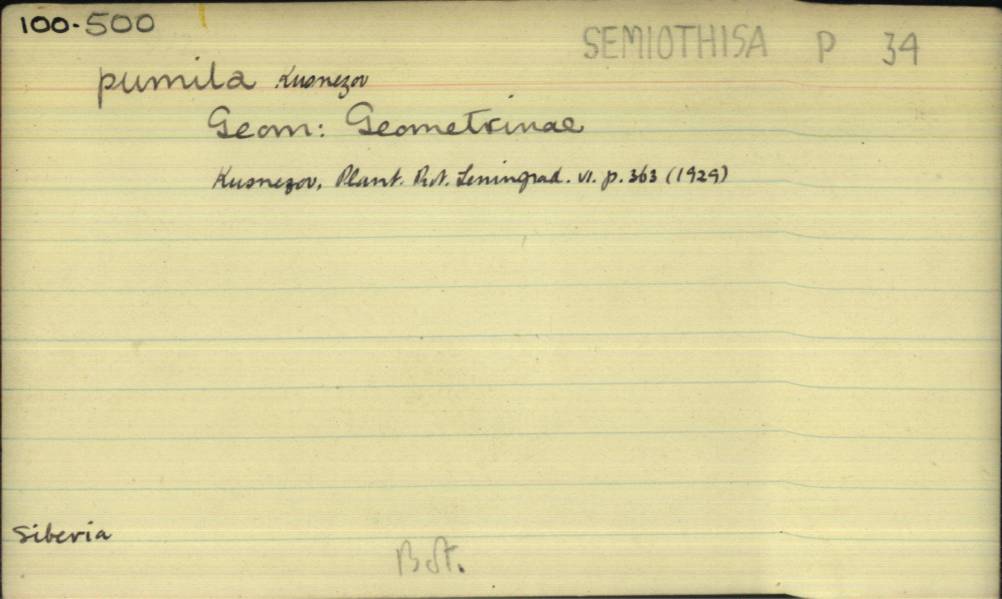 100-500
SEMIOTHISA P 34
pumila Kusnezov
Geom: Geometrinae
Kusnezov, Plant. Prot. Leningrad. VI. p. 363 (1929)
Siberia